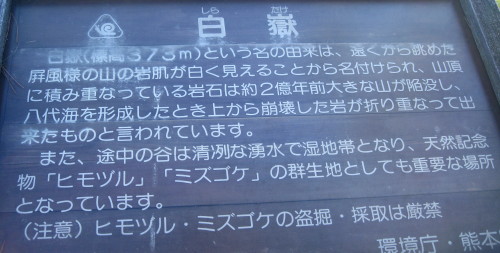 しら　たけ
白嶽
白嶽(標高373m)という名の由来は、遠くから眺めた
屏風様の山の岩肌が白く見えることから名付けられ、山頂
に積み重なっている岩石は約2億年前大きな山が陥没し、
八代海を形成したとき上から崩壊した岩が折り重なって出
来たものと言われています。
また、途中の谷は清冽な湧水で湿地帯となり、天然記念
物「ヒモヅル」「ミズゴケ」の群生地としても重要な場所
となっています。
(注意)ヒモヅル・ミズゴケの盗掘・採取は厳禁
環境庁・熊本